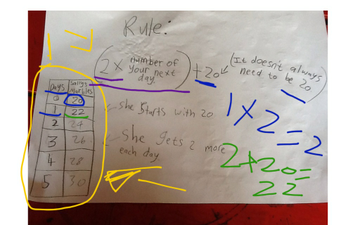 Rule:
(2 x number of your day next day) + 20
(It doesn't always need to be 20)
Days
0 20
1 22
2 24
3 26
4 28
5 30
she starts with 20
She gets 2 more each day
1 x 2 = 2
2 + 20 = 22